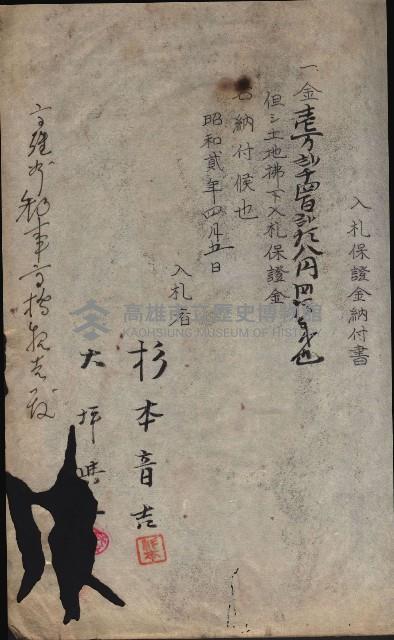 入札保證金納付書
一金壱万弐千四百弐拾八円四拾銭也
但シ土地拂下入札保證金
納付候也
昭和貳年四月五日
入札者
杉本音吉
大坪
高雄州知事高橋親吉殿
高雄市立歷史博物館
KAOHSIUNG MUSEUM OF HISTORY